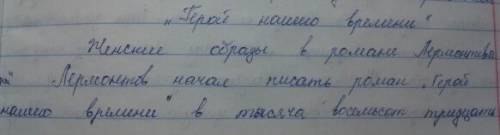 „Герой нашго времени"
Женские образы в романе Лермонтова
Лермонтов начал писать роман „Герой
нашго времени" в тысяча восемьсот тридцать